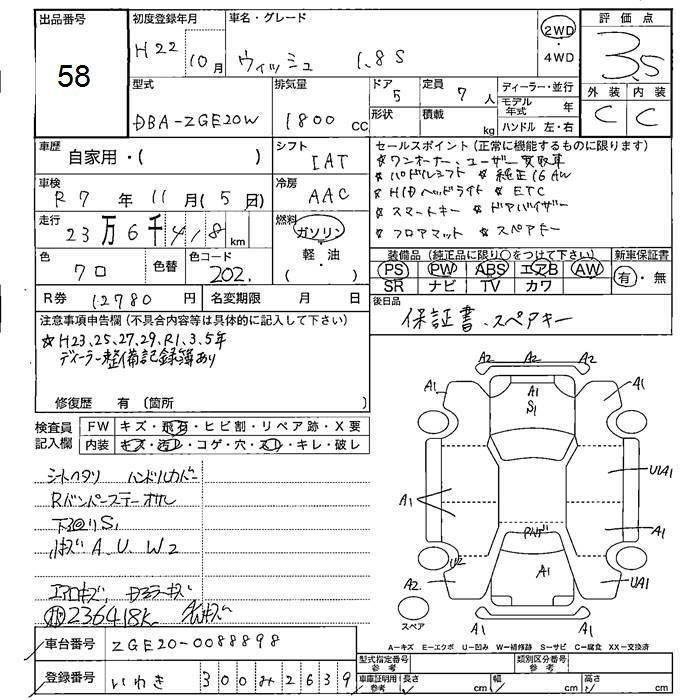 出品番号
58
初度登録年月
H22 10月
車名・グレード
ウィッシュ 1.8S
2WD
・
4WD
評価点
3.5
外装 内装
C C
型式
DBA-ZGE20W
排気量
1800 cc
ドア
5
形状
定員
7人
積載
kg
ディーラー・並行
モデル年式 年
ハンドル 左・右
車歴
自家用・( )
シフト
IAT
車検
R7年11月(5日)
冷房
AAC
走行
23万6千418km
燃料
ガソリン
・
軽・油
( )
色
クロ
色替
色コード
202
R券 12780円
名変期限 月 日
セールスポイント(正常に機能するものに限ります)
☆ワンオーナー、ユーザー買取車
☆パドルシフト ☆純正16AW
☆HIDヘッドライト ☆ETC
☆スマートキー ☆ドアバイザー
☆フロアマット ☆スペアキー
装備品(純正品に限り○をつけて下さい)
PS PW ABS エアB AW
SR ナビ TV カワ
新車保証書
有・無
後日品
保証書、スペアキー
注意事項申告欄(不具合内容等は具体的に記入して下さい)
☆H23,25,27,29,R1,3,5年
ディーラー整備記録簿あり
修復歴 有〔箇所 〕
検査員記入欄
FW キズ・飛石・ヒビ割・リペア跡・X要
内装 キズ・汚レ・コゲ・穴・スレ・キレ・破レ
シートヘタリ ハンドルカバー
Rバンパーステーオサレ
下廻りS1
小キズA.U.W2
エアロキズ
236418K
車台番号 ZGE20-0088898
登録番号 いわき300み2639
A2 A2 A2
A1 A1 A1
S1
A1 U1A1
A1
A2 U2 A1 UA1
A1 A1
スペア
A-キズ E-エクボ U-凹み W-補修跡 S-サビ C-腐食 XX-交換済
型式指定番号 参考
類別区分番号 参考
車庫証明用 参考
長さ cm 幅 cm 高さ cm